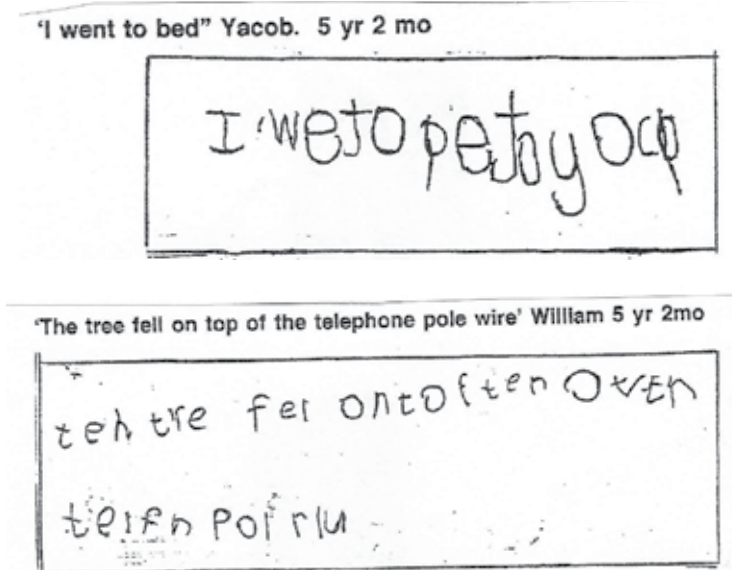 ‘I went to bed” Yacob. 5 yr 2 mo
I wetopetoyocp
‘The tree fell on top of the telephone pole wire’ William 5 yr 2mo
teh tre fel ontoften Oven
telfn Pol rlu